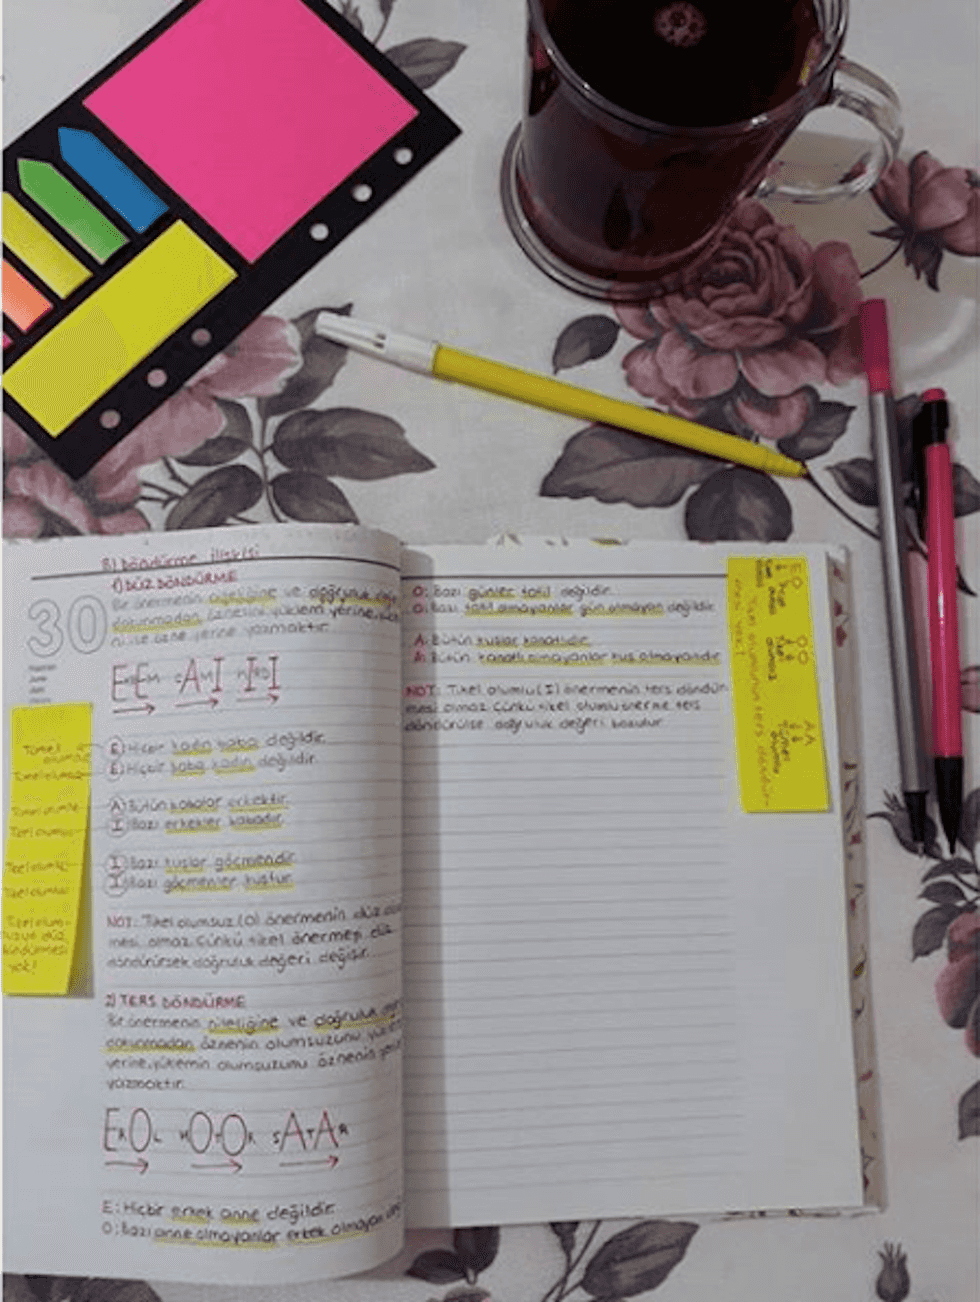 B) Döndürme İlişkisi
1) DÜZ DÖNDÜRME
Bir önermenin niteliğine ve doğruluk
dokunmadan öznesini yüklem yerine,
özne yerine yazmaktır.
30
Haziran
June
E E A I I I
E: Hiçbir kadın baba değildir.
E: Hiçbir baba kadın değildir.
A: Bütün babalar erkektir.
I: Bazı erkekler babadır.
I: Bazı kuşlar göçmendir.
I: Bazı göçmenler kuştur.
NOT: Tikel olumsuz (O) önermenin düz
mesi olmaz. Çünkü tikel önermeyi düz
döndürürsek doğruluk değeri değişir.
2) TERS DÖNDÜRME
Bir önermenin niteliğine ve doğruluk
dokunmadan öznenin olumsuzunu
yerine, yüklemin olumsuzunu öznenin
yazmaktır.
EROL HOTOK SATAR
E: Hiçbir erkek anne değildir.
O: Bazı anne olmayanlar erkek olmayan
Tümel
olumsuz
Tümel olumsuz
Tümel olumlu
Tikel olumlu
Tikel olumlu
Tikel olumlu
Tikel olum-
suzun düz
döndürmesi
yok!
O: Bazı günler tatil değildir.
O: Bazı tatil olmayanlar gün olmayan değildir.
A: Bütün kuşlar kanatlıdır.
A: Bütün kanatlı olmayanlar kuş olmayandır.
NOT: Tikel olumlu (I) önermenin ters döndür-
mesi olmaz. Çünkü tikel olumlu önerme ters
döndürülse doğruluk değeri bozulur.
EO
OO
AA
Tikel olumlunun ters döndür-
mesi yok!